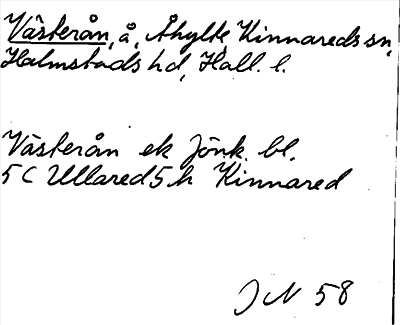 Västerån, å, Åhylte, Kinnareds sn,
Halmstads hd, Hall. l.
Västerån ek Jönk. bl.
5 C Ullared 5 h Kinnared
J N 58